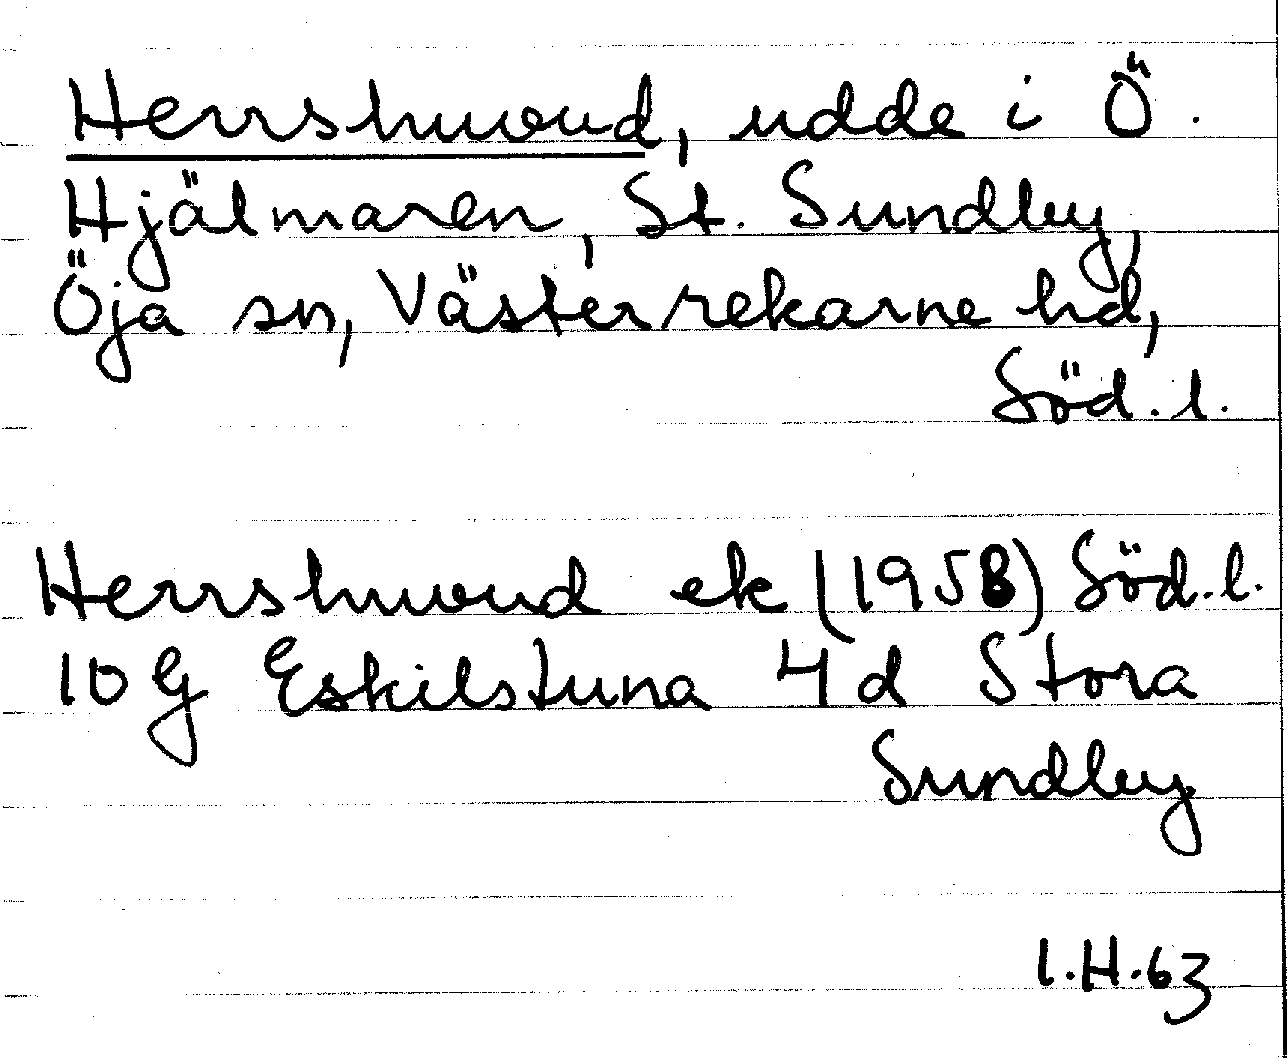 Herrshuvud, udde i Ö.
Hjälmaren, St. Sundby,
Öja sn, Västerrekarne hd,
Söd. l.
Herrshuvud ek (1958) Söd. l.
10 G Eskilstuna 4 d Stora
Sundby
I.H.63